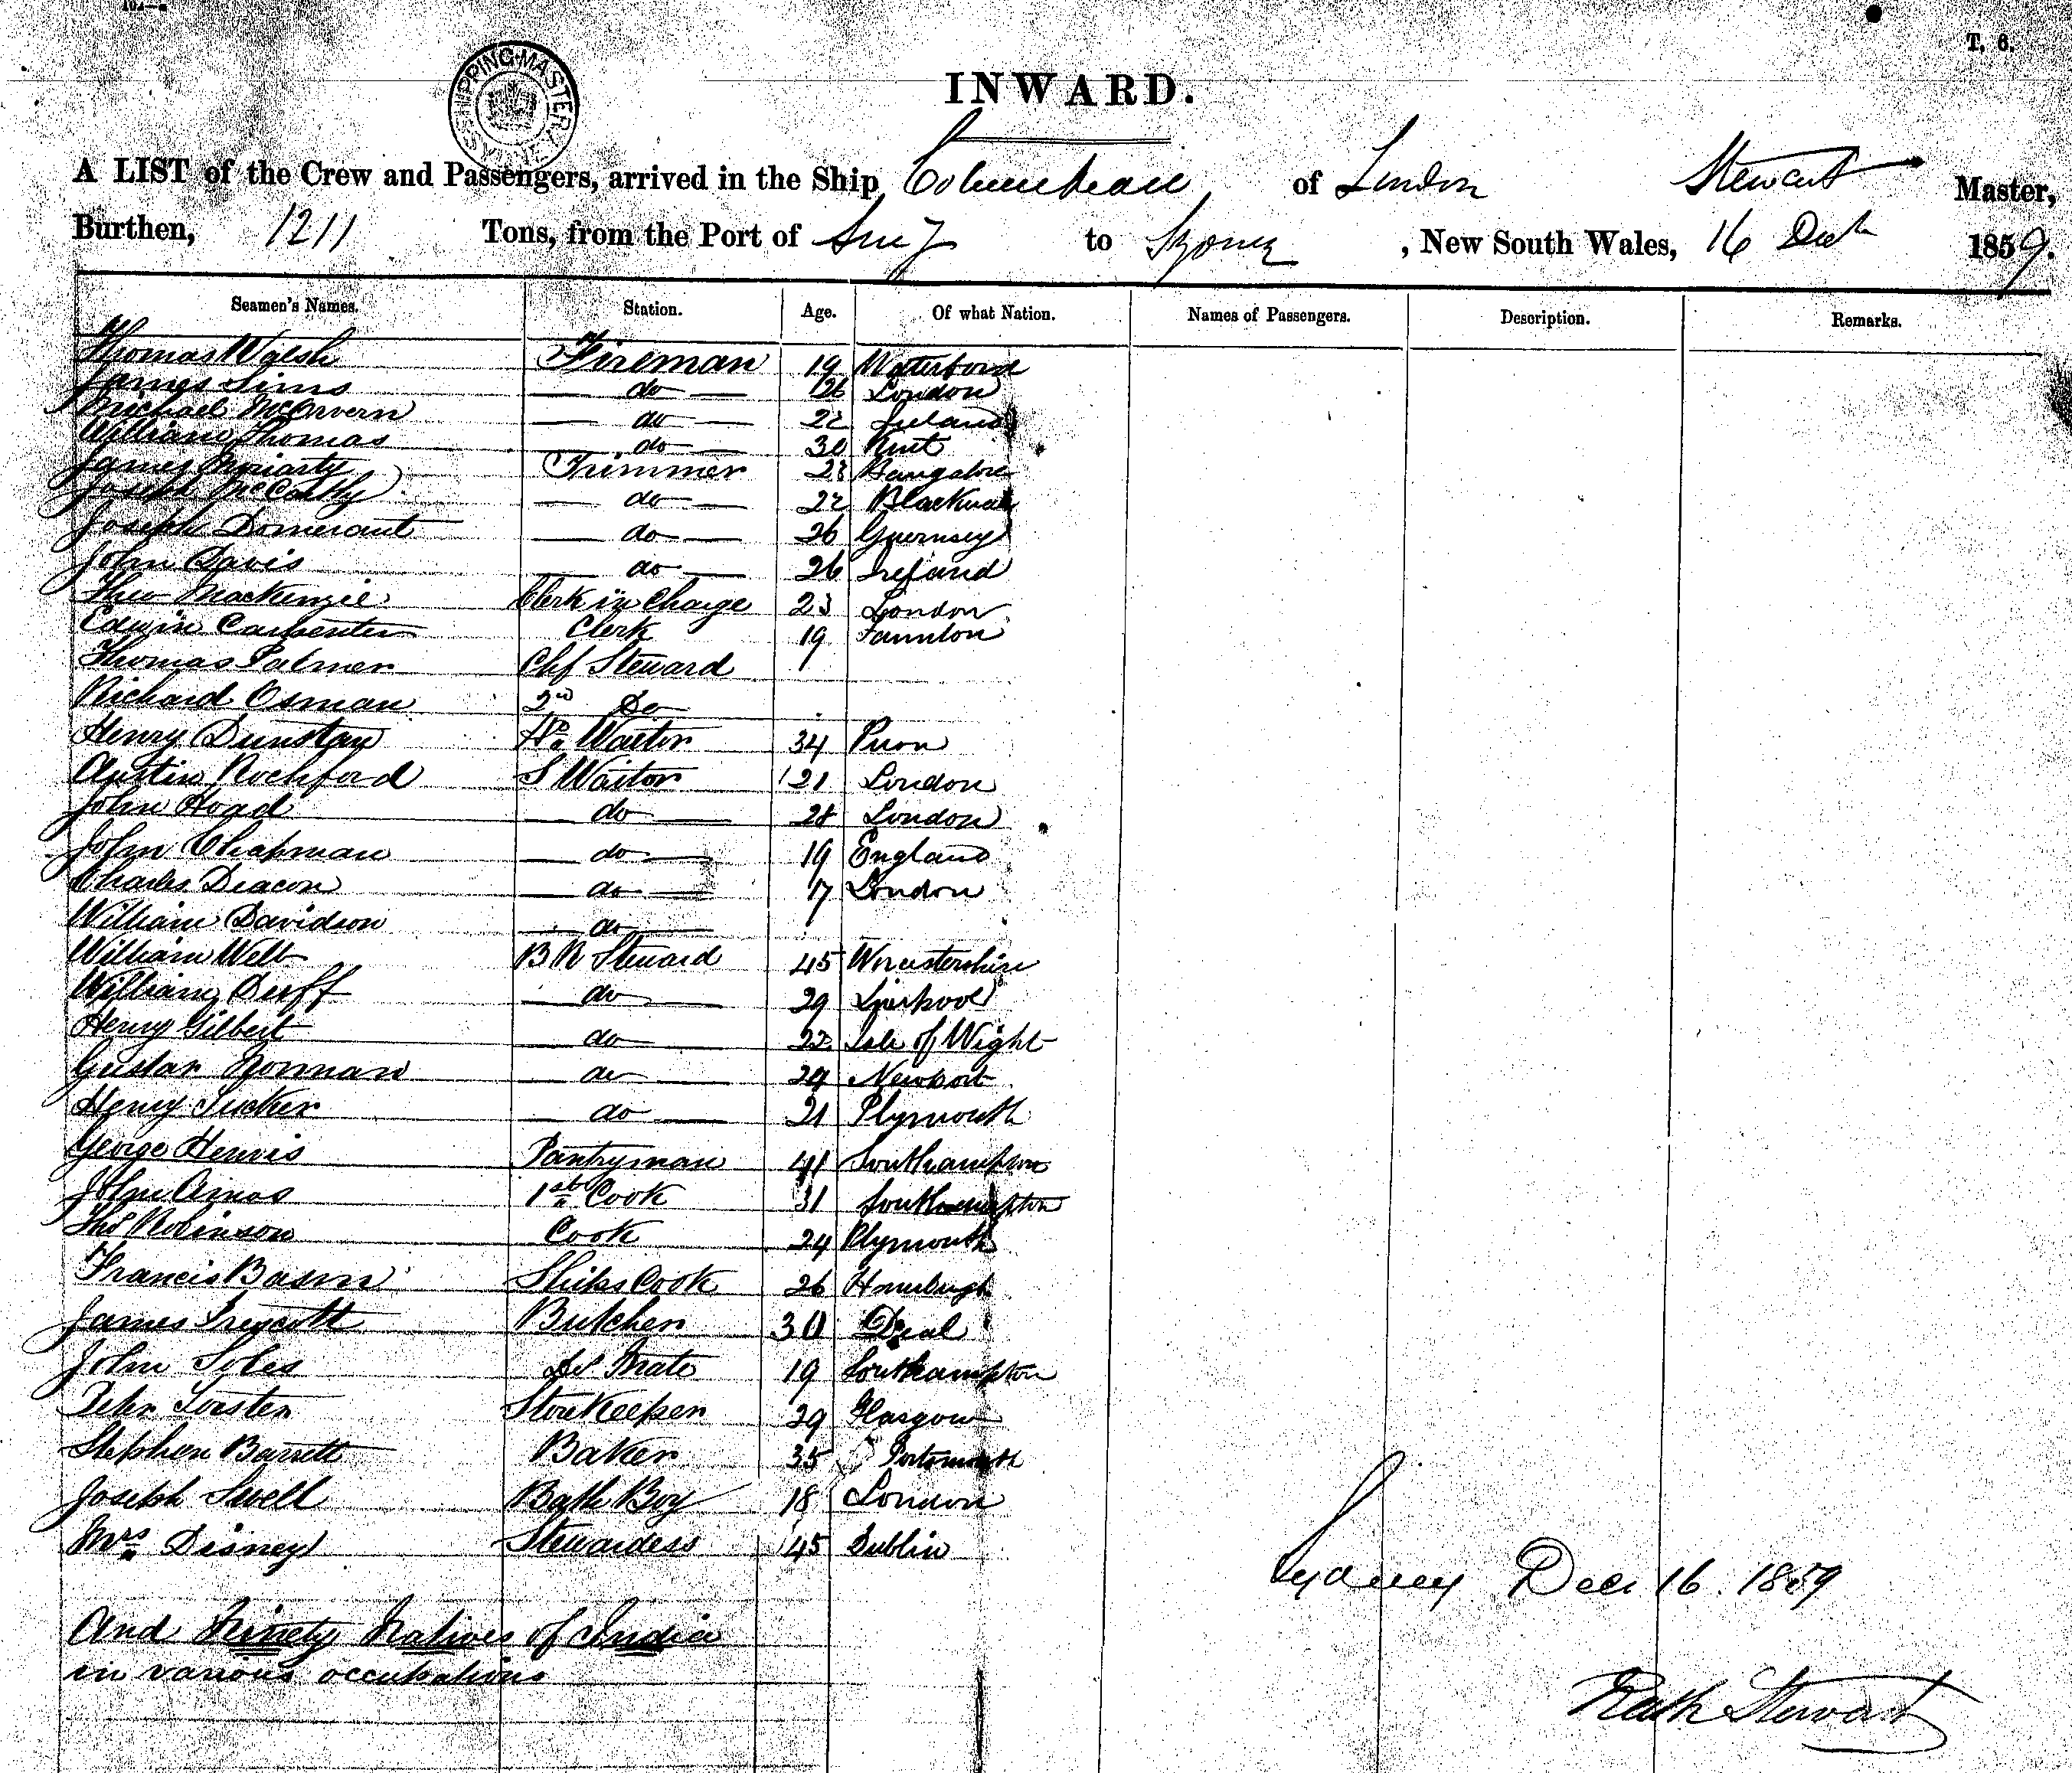 T. 6.
SHIPPING MASTER SYDNEY
INWARD.
A LIST of the Crew and Passengers, arrived in the Ship Columbian of London Stewart Master,
Burthen, 1211 Tons, from the Port of Suez to Sydney, New South Wales, 16 Dec 1859.
Seamen's Names. Station. Age. Of what Nation. Names of Passengers. Description. Remarks.
Thomas Walsh Fireman 19 Waterford
James Sims do 26 London
Michael McGovern do 22 Ireland
William Thomas do 30 Kent
James Moriarty Trimmer 23 Bangalore
Joseph McCarthy do 22 Blackwall
Joseph Domeraut do 26 Guernsey
John Davis do 26 Ireland
Theo Mackenzie Clerk in Charge 23 London
Edwin Carpenter Clerk 19 Taunton
Thomas Palmer Chf Steward
Richard Osman 2nd Do
Henry Dunstan Waiter 34
Austin Rochford S Waiter 21 London
John Hoad do 28 London
John Chapman do 19 England
Charles Deacon do 17 London
William Davidson do
William Webb B R Steward 45 Worcestershire
William Duff do 29 Liverpool
Henry Gilbert do 22 Isle of Wight
Gustav Norman do 29 Newport
Henry Tucker do 21 Plymouth
George Hewis Pantryman 41 Southampton
John Amos 1st Cook 31 Southampton
Thos Robinson Cook 24 Plymouth
Francis Basin Ships Cook 26
James Treycott Butcher 30 Deal
John Soles Do Mate 19 Southampton
Peter Torsten Storekeeper 29 Glasgow
Stephen Barrett Baker 35 Portsmouth
Joseph Swell Bath Boy 18 London
Mrs Disney Stewardess 45 Dublin
Sydney Dec 16. 1859
And Ninety Natives of India
in various occupations
Stewart